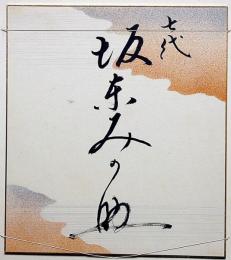 七代
坂東みの助